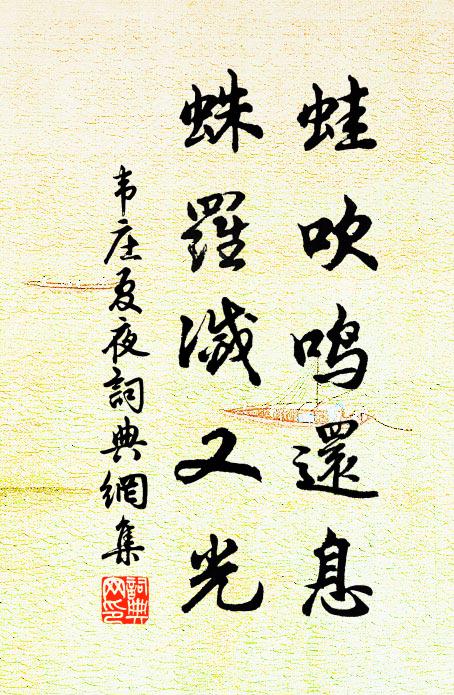 蛙吹鸣還息
蛛羅滅又光
韦庄夏夜詞典網集
詞典网印